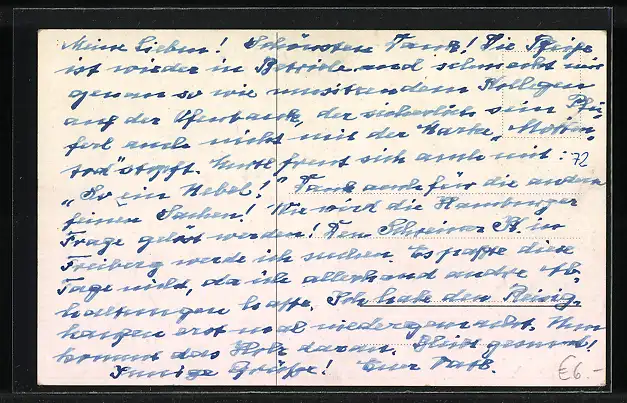 Meine Lieben! Schönsten Dank! Die Pfeife
ist wieder in Betrieb und schmeckt mir
genau so wie umsitzendem Kollegen
auf der Ofenbank, der sicherlich sein Pfei-
ferl auch nicht mit der Marke „Motten-
tod" stopft. freut sich auch mit: 72
„So ein Nebel!" Dank auch für die andern
feinen Sachen! Wie wird die Hamburger
Frage gelöst werden! Den Schreiner H. in
Freiberg werde ich suchen. Es paßte diese
Tage nicht, da ich allerhand andre Ab-
haltungen hatte. Ich habe den Reisig-
haufen erst mal niedergemacht. Nun
kommt das Holz daran. Bleibt gesund!
Innige Grüße! Euer Vati.
€6.-